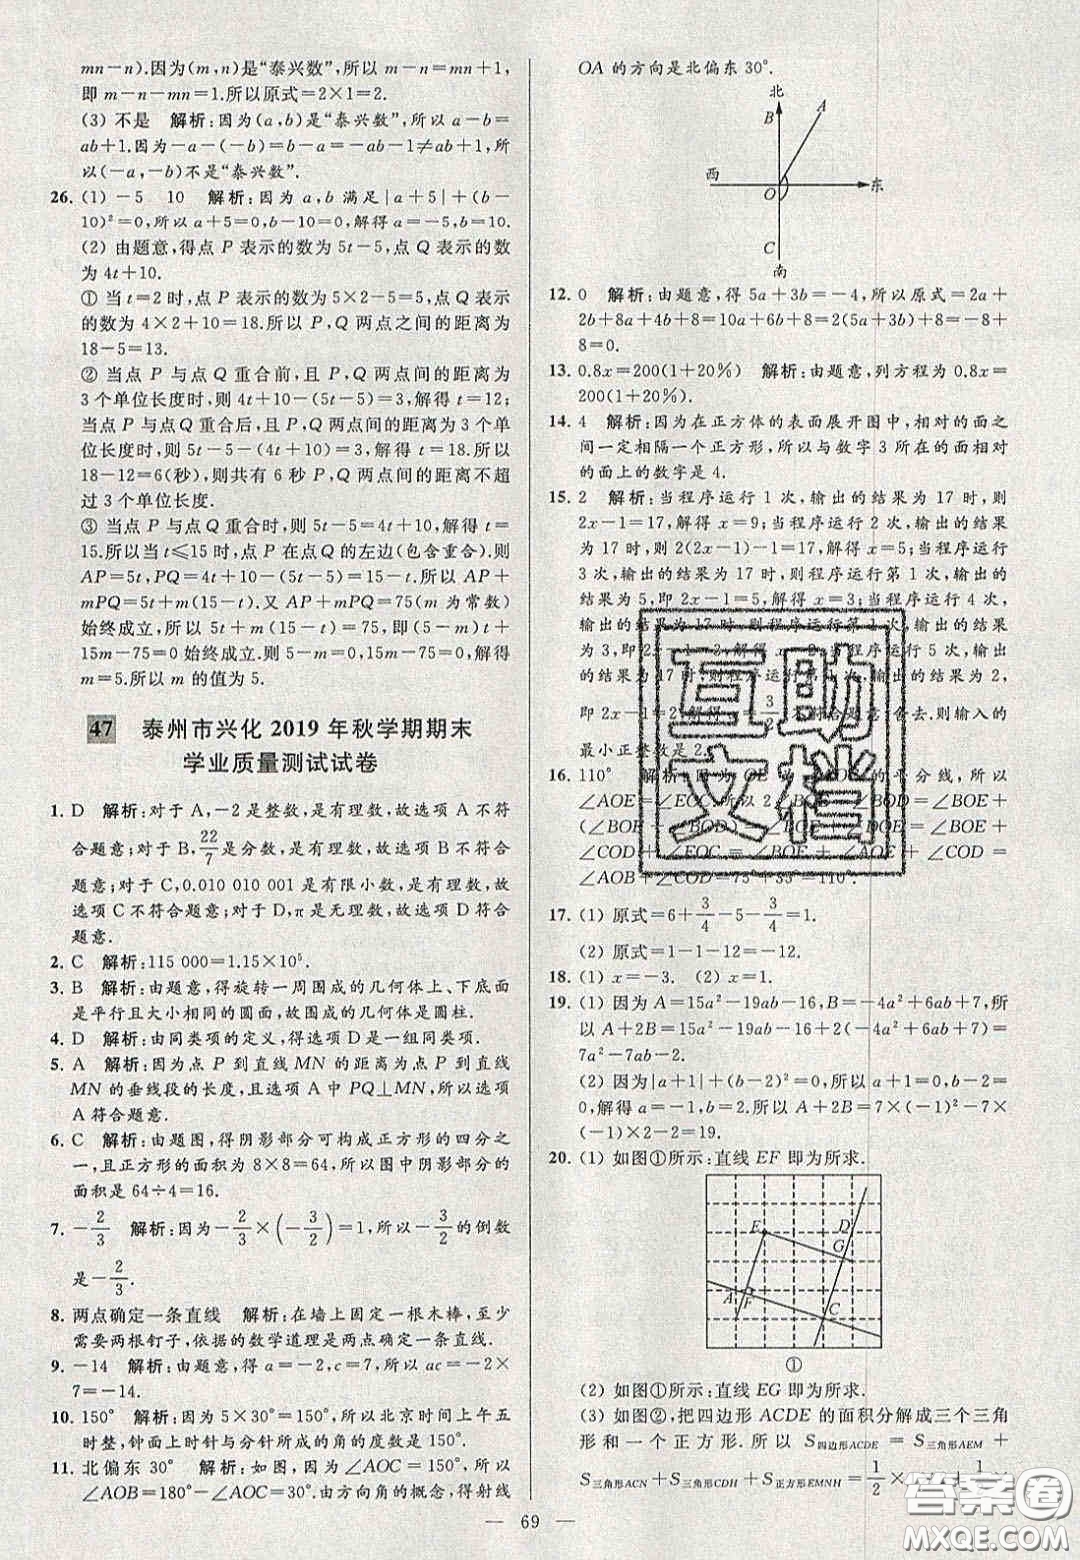 mn-n).因为(m,n)是“泰兴数”,所以 m-n=mn+1,
即 m-n-mn=1.所以原式=2×1=2.
(3) 不是 解析:因为(a,b)是“泰兴数”,所以 a-b=
ab+1.因为-a-(-b)=b-a=-ab-1≠ab+1,所
以(-a,-b)不是“泰兴数”.
26. (1) -5 10 解析:因为 a,b 满足|a+5|+(b-
10)²=0,所以 a+5=0,b-10=0,解得 a=-5,b=10.
(2) 由题意,得点 P 表示的数为 5t-5,点 Q 表示的数
为 4t+10.
① 当 t=2 时,点 P 表示的数为 5×2-5=5,点 Q 表示
的数为 4×2+10=18.所以 P,Q 两点之间的距离为
18-5=13.
② 当点 P 与点 Q 重合前,且 P,Q 两点间的距离为
3 个单位长度时,则 4t+10-(5t-5)=3,解得 t=12;
当点 P 与点 Q 重合后,且 P,Q 两点间的距离为 3 个单
位长度时,则 5t-5-(4t+10)=3,解得 t=18.所以
18-12=6(秒),则共有 6 秒 P,Q 两点间的距离不超
过 3 个单位长度.
③ 当点 P 与点Q 重合时,则 5t-5=4t+10,解得 t=
15.所以当 t≤15 时,点 P 在点 Q 的左边(包含重合).则
AP=5t,PQ=4t+10-(5t-5)=15-t.所以 AP+
mPQ=5t+m(15-t).又 AP+mPQ=75(m 为常数)
始终成立,所以 5t+m(15-t)=75,即(5-m)t+
15m-75=0 始终成立.则 5-m=0,15m-75=0,解得
m=5.所以 m 的值为 5.
47 泰州市兴化 2019 年秋学期期末
学业质量测试试卷
1. D 解析:对于 A,-2 是整数,是有理数,故选项 A 不符
合题意;对于 B,22/7是分数,是有理数,故选项 B 不符合
题意;对于 C,0.010 010 001 是有限小数,是有理数,故
选项 C 不符合题意;对于 D,π是无理数,故选项 D 符合
题意.
2. C 解析:115 000=1.15×10⁵.
3. B 解析:由题意,得旋转一周围成的几何体上下底面
是平行且大小相同的圆面,故围成的几何体是圆柱.
4. D 解析:由同类项的定义,得选项 D 是一组同类项.
5. A 解析:因为点 P 到直线 MN 的距离为点 P 到直线
MN 的垂线段的长度,且选项 A 中 PQ⊥MN,故选项
A 符合题意.
6. C 解析:由题图,得阴影部分可构成正方形的四分之
一,且正方形的面积为 8×8=64,所以图中阴影部分的
面积是 64÷4=16.
7. -2/3 解析:因为-2/3×(-3/2)=1,所以-3/2的倒数
是-2/3.
8. 两点确定一条直线 解析:在墙上固定一根木棒,至少
需要两根钉子,依据的数学道理是两点确定一条直线.
9. -14 解析:由题意,得 a=-2,c=7,所以 ac=-2×
7=-14.
10. 150° 解析:因为 5×30°=150°,所以北京时间上午五
时整,钟面上时针与分针所成的角的度数是 150°.
11. 北偏东 30° 解析:如图,因为∠AOC=150°,所以
∠AOB=180°-∠AOC=30°.由方向角的概念,得射线
OA 的方向是北偏东 30°.
北
B
A
西
O
东
C
南
12. 0 解析:由题意,得 5a+3b=-4,所以原式=2a+
2b+8a+4b+8=10a+6b+8=2(5a+3b)+8=-8+
8=0.
13. 0.8x=200(1+20%) 解析:由题意,列方程为 0.8x=
200(1+20%).
14. 4 解析:因为在正方体的表面展开图中,相对的面之
间一定相隔一个正方形,所以与数字 3 所在的面相对
的面上的数字是 4.
15. 2 解析:当程序运行 1 次,输出的结果为 17 时,则
2x-1=17,解得 x=9;当程序运行 2 次,输出的结果
为 17 时,则 2(2x-1)-1=17,解得 x=5;当程序运行
3 次,输出的结果为 17 时,则程序运行第 1 次,输出的
结果为 5,即 2x-1=5,解得 x=3;当程序运行 4 次,
输出的结果为 17 时,则程序运行第 1 次,输出的结果
为 3,即 2x-1=3,解得 x=2;当程序运行 5 次,输出的
结果为 17 时,则程序运行第 1 次,输出的结果为 2,即
2x-1=2,解得 x=3/2,不合题意,舍去.则输入的
最小正整数是 2.
16. 110° 解析:因为 OE 是∠AOC 的平分线,所以
∠AOE=∠EOC.所以 2∠BOE+∠BOD=∠BOE+
(∠BOE+∠BOD)=∠BOE+∠DOE=∠BOE+
∠COD+∠EOC=∠BOE+∠AOE+∠COD=
∠AOB+∠COD=75°+35°=110°.
17. (1) 原式=6+3/4-5-3/4=1.
(2) 原式=1-1-12=-12.
18. (1) x=-3. (2) x=1.
19. (1) 因为 A=15a²-19a-16,B=-4a²+6a+7,所
以 A+2B=15a²-19a-16+2(-4a²+6a+7)=
7a²-7a-2.
(2) 因为|a+1|+(b-2)²=0,所以 a+1=0,b-2=
0,解得 a=-1,b=2.所以 A+2B=7×(-1)²-7×
(-1)-2=19.
20. (1) 如图①所示:直线 EF 即为所求.
E
D
G
A
F
C
①
(2) 如图①所示:直线 EG 即为所求.
(3) 如图②,把四边形 ACDE 的面积分解成三个三角
形和一个正方形.所以 S四边形ACDE=S三角形AEM+
S三角形ACN+S三角形CDH+S正方形EMNH=1/2×
互助
文档
答案圈
MXQE.COM
— 69 —